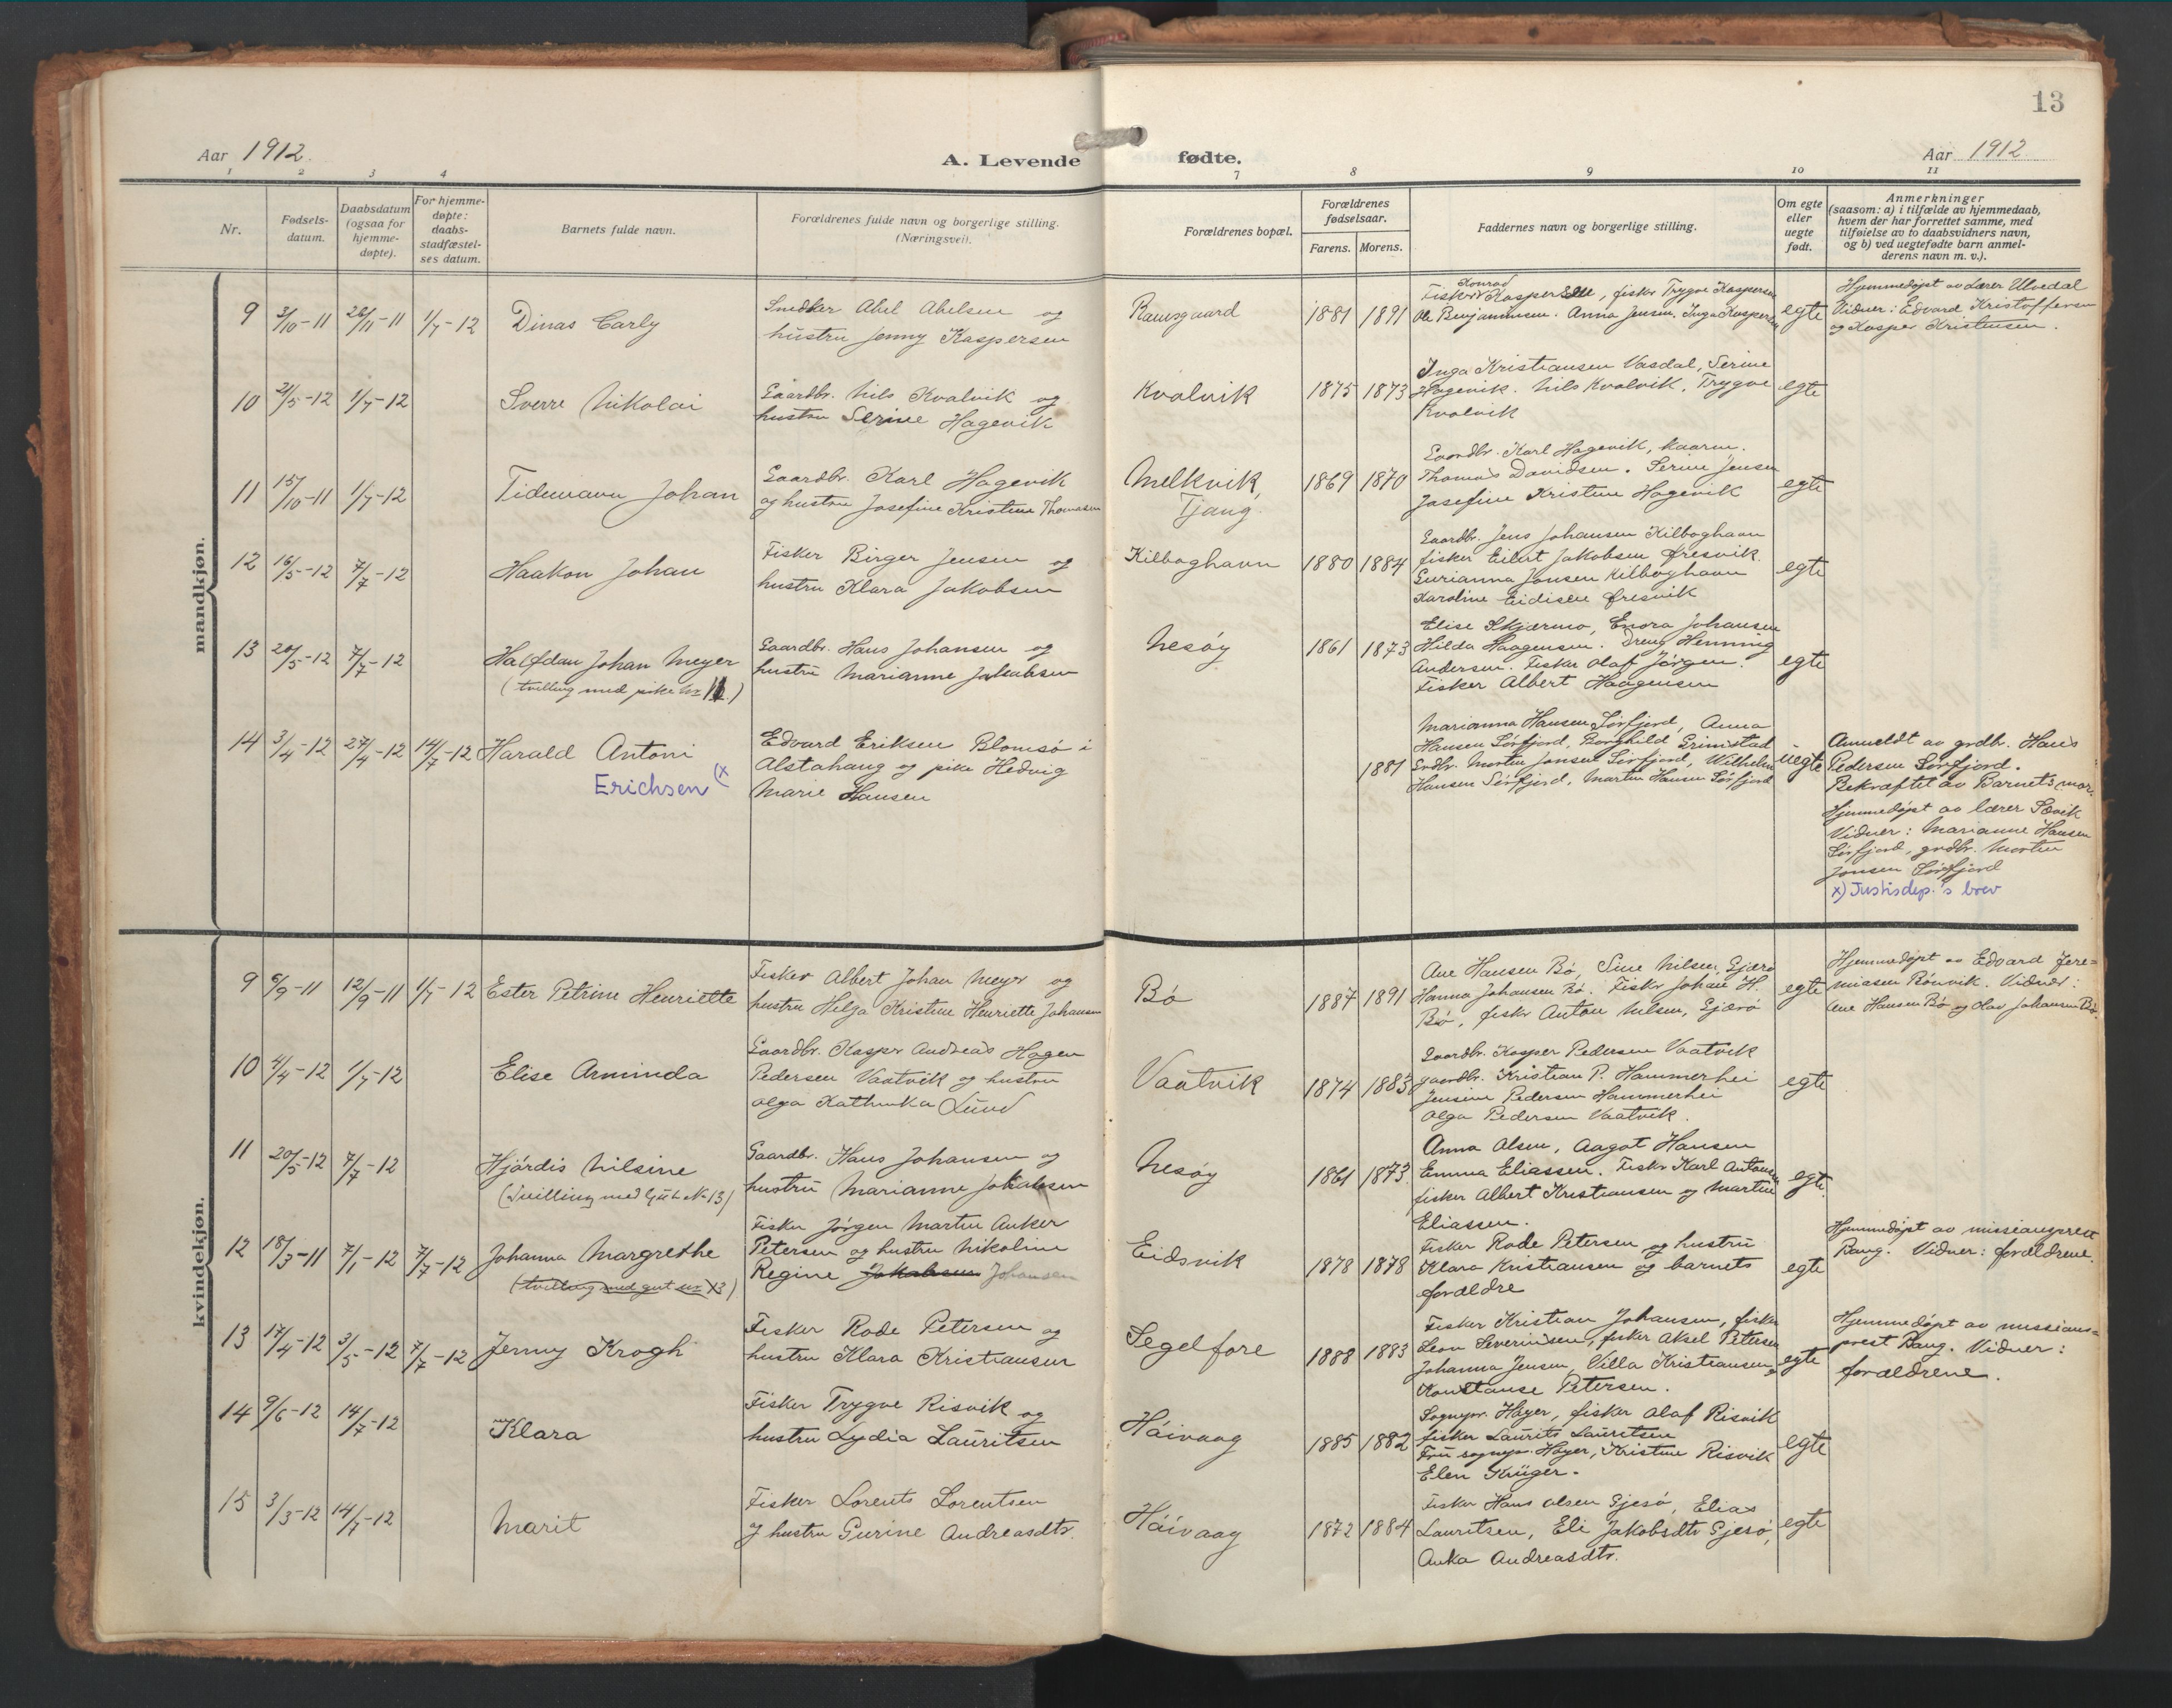 13
Aar 1912.
A. Levende fødte.
Aar 1912
1 2 3 4 7 8 9 10 11
Nr.
Fødsels-
datum.
Daabsdatum
(ogsaa for
hjemme-
døpte).
For hjemme-
døpte:
daabs-
stadfæstel-
ses datum.
Barnets fulde navn.
Forældrenes fulde navn og borgerlige stilling.
(Næringsvei).
Forældrenes bopæl.
Forældrenes
fødselsaar.
Farens. Morens.
Faddernes navn og borgerlige stilling.
Om egte
eller
uegte
født.
Anmerkninger
(saasom: a) i tilfælde av hjemmedaab,
hvem der har forrettet samme, med
tilføielse av to daabsvidners navn,
og b) ved uegtefødte barn anmel-
derens navn m. v.).
mandkjøn.
9 3/10-11 26/11-11 1/7-12 Dinas Carly
Snedker Abel Abelsen og
hustru Jenny Kaspersen
Ramsgaard 1881 1891
Konrad
Fisker Kaspersen, fisker Trygve Kaspersen
Ole Benjaminsen. Anna Jensen. Inga Kaspersen
egte
Hjemmedøpt av Lærer Ulvedal
Vidner: Edvard Kristoffersen
og Kasper Kristensen.
10 21/5-12 1/7-12 Sverre Nikolai
Gaardbr. Nils Kvalvik og
hustru Serine Hagevik
Kvalvik 1875 1873
Inga Kristiansen Vasdal, Serine
Hagevik. Nils Kvalvik. Trygve
Kvalvik
egte
11 15/10-11 1/7-12 Tidemann Johan
Gaardbr. Karl Hagevik
og hustru Josefine Kristine Thomasen
Melkvik,
Tjang
1869 1870
Gaardbr. Karl Hagevik,
Thomas Davidsen. Serine Jensen
Josefine Kristine Hagevik
egte
12 16/5-12 7/7-12 Haakon Johan
Fisker Birger Jensen og
hustru Klara Jakobsen
Kilboghavn 1880 1884
Gaardbr. Jens Johansen Kilboghavn
fisker Eilert Jakobsen Øresvik.
Gurianna Jensen Kilboghavn
Karoline Eidisen Øresvik
egte
13 20/5-12 7/7-12 Halfdan Johan Meyer
(tvilling med pike nr 11)
Gaardbr. Hans Johansen og
hustru Marianne Jakobsen
Nesøy 1861 1873
Elise Skjærmo, Enora Johansen
Hilda Haagensen. Dreng Henning
Andersen. Fisker Olaf Jörgen.
Fisker Albert Haagensen
egte
14 3/4-12 27/4-12 14/7-12 Harald Antoni
Erichsen (x
Edvard Eriksen Blomsø i
Alstahaug og pike Hedvig
Marie Hansen
1881
Marianna Hansen Sørfjord, Anna
Hansen Sörfjord, Borghild Grimstad
Grdbr. Morten Jonsen Sörfjord, Wilhelm
Hansen Sörfjord, Martin Hansen Sörfjord
uegte
Anmeldt av grdbr. Hans
Pedersen Sørfjord.
Bekræftet av Barnets mor.
Hjemmedøpt av lærer Sævik
Vidner: Marianne Hansen
Sörfjord, grdbr. Morten
Jonsen Sørfjord
x) Justisdep.'s brev
kvindekjøn.
9 6/9-11 12/9-11 1/7-12 Ester Petrine Henriette
Fisker Albert Johan Meyer og
hustru Helga Kristine Henriette Johansen
Bö 1887 1891
Ane Hansen Bö, Sine Nilsen, Gjærö
Hanna Johansen Bö. Fisker Johan H.
Bö, fisker Anton Nilsen, Gjærö
egte
Hjemmedöpt av Edvard Jere=
miasen Rönvik. Vidner:
Ane Hansen Bö og Olav Johansen Bö.
10 4/4-12 1/7-12 Elise Arminda
Gaardbr. Kasper Andreas Hagen
Pedersen Vaatvik og hustru
Olga Kathinka Lund
Vaatvik 1874 1883
Gaardbr. Kasper Pedersen Vaatvik
gaardbr. Kristian P. Hammerhei
Jensine Pedersen Hammerhei
Olga Pedersen Vaatvik.
egte
11 20/5-12 7/7-12 Hjördis Nilsine
(Tvilling med Gut No 13)
Gaardbr. Hans Johansen og
hustru Marianne Jakobsen
Nesøy 1861 1873.
Anna Olsen, Aagot Hansen
Emma Eliassen. Fisker Karl Antonsen
fisker Albert Kristiansen og Martin
Eliassen.
egte.
12 18/3-11 7/1-12 7/7-12 Johanna Margrethe
(tvilling med gut nr 13)
Fisker Jörgen Martin Anker
Petersen og hustru Nikoline
Regine Jakobsen Johansen
Eidsvik 1878 1878
Fisker Rode Petersen og hustru
Klara Kristiansen og barnets
forældre
egte
Hjemmedøpt av missionsprest
Bang. Vidner: forældrene.
13 17/4-12 3/5-12 7/7-12 Jenny Krogh
Fisker Rode Petersen og
hustru Klara Kristiansen
Segelfore 1888 1883
Fisker Kristian Johansen, fisker
Leon Severinsen, fisker Aksel Petersen
Johanna Jensen, Villa Kristiansen og
Konstanse Petersen.
egte
Hjemmedøpt av missions=
prest Bang. Vidner:
forældrene.
14 9/6-12 14/7-12 Klara
Fisker Trygve Risvik og
hustru Lydia Lauritsen
Häivaag 1885 1882
Sognepr. Høyer, fisker Olaf Risvik
fisker Laurits Lauritsen
Fru sognepr. Høyer, Kristine Risvik
Elen Krüger.
egte
15 3/3-12 14/7-12 Marit
Fisker Lorents Lorentsen
og hustru Gurine Andreasdtr.
Häivaag 1872 1884
Fisker Hans Olsen Gjesö, Elias
Lauritsen, Eli Jakobsdtr Gjesö,
Anka Andreasdtr.
egte